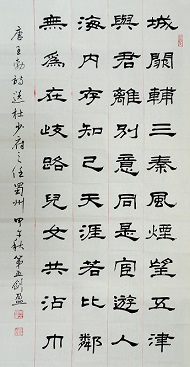 城闕輔三秦風煙望五津
與君離別意同是宦遊人
海内存知己天涯若比鄰
無爲在歧路兒女共沾巾
唐王勃詩送杜少府之任蜀州 甲午秋